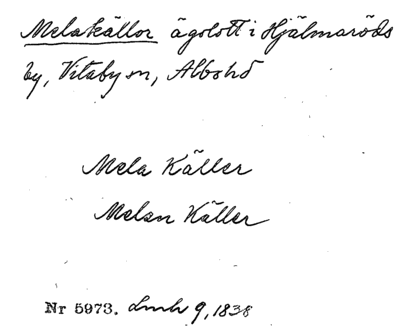 Melakällor ägolott i Hjälmaröds
by, Vitaby sn, Albohd
Mela Käller
Melan Käller
Nr 5973. Lmh 9, 1838